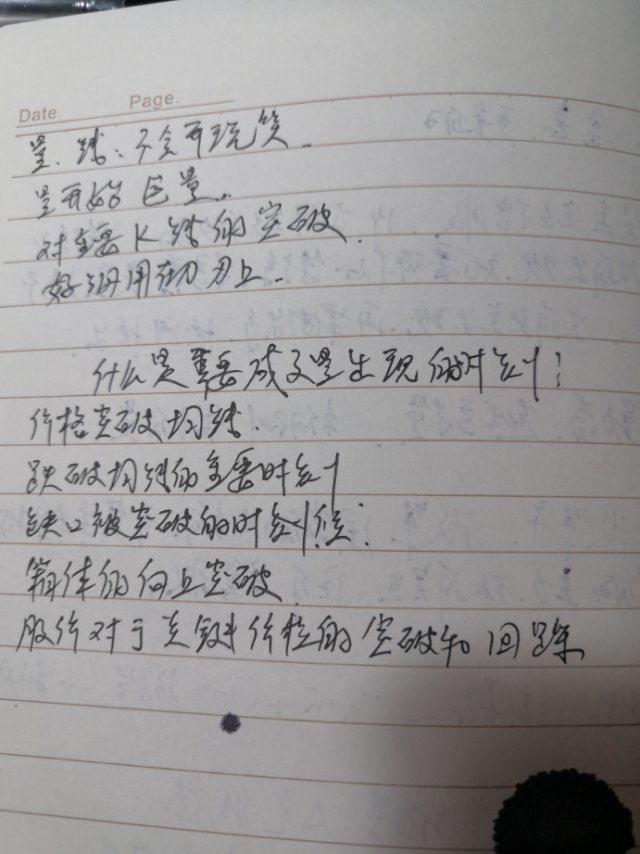 Date. Page.
量、线：不会开玩笑.
量开始 巨量.
对重要K线的突破.
好钢用在刀刃上.
什么是重要成交量出现的时刻？
价格突破均线.
跌破均线的重要时刻
缺口被突破的时刻.
箱体的向上突破.
股价对于关键价位的突破和回踩